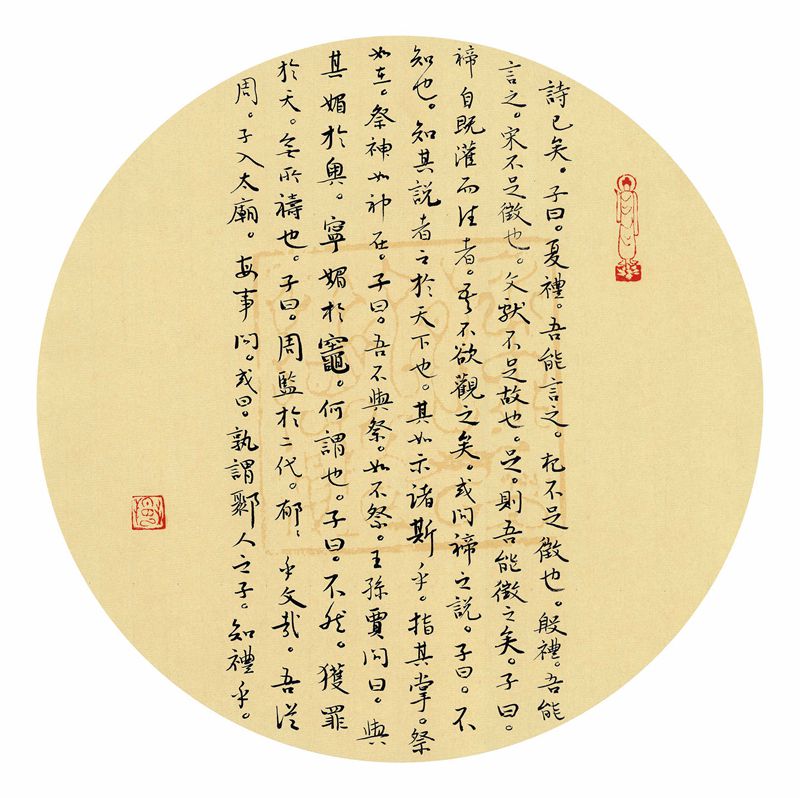 詩已矣。子曰。夏禮。吾能言之。杞不足徵也。殷禮。吾能
言之。宋不足徵也。文獻不足故也。足。則吾能徵之矣。子曰。
禘自既灌而往者。吾不欲觀之矣。或問禘之説。子曰。不
知也。知其説者之於天下也。其如示諸斯乎。指其掌。祭
如在。祭神如神在。子曰。吾不與祭。如不祭。王孫賈問曰。與
其媚於奧。寧媚於竈。何謂也。子曰。不然。獲罪
於天。無所禱也。子曰。周監於二代。郁〻乎文哉。吾從
周。子入太廟。每事問。或曰。孰謂鄹人之子。知禮乎。